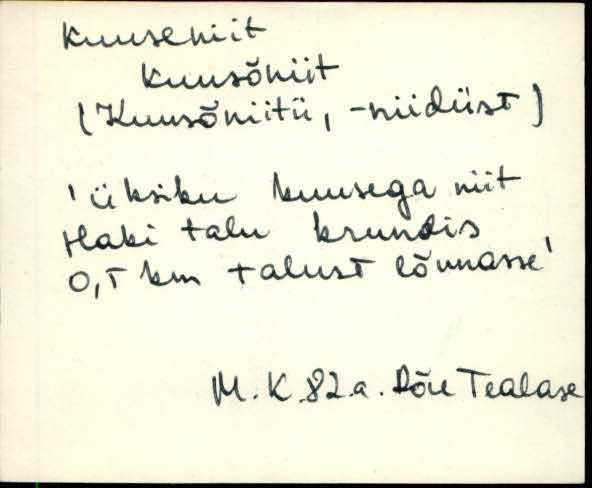 Kuuseniit
Kuusõniit
(Kuusõniitü, -niidüst)
'üksiku kuusega niit
Haki talu krundis
0,5 km talust lõunasse'
M.K. 82.a. Rõu Tealase